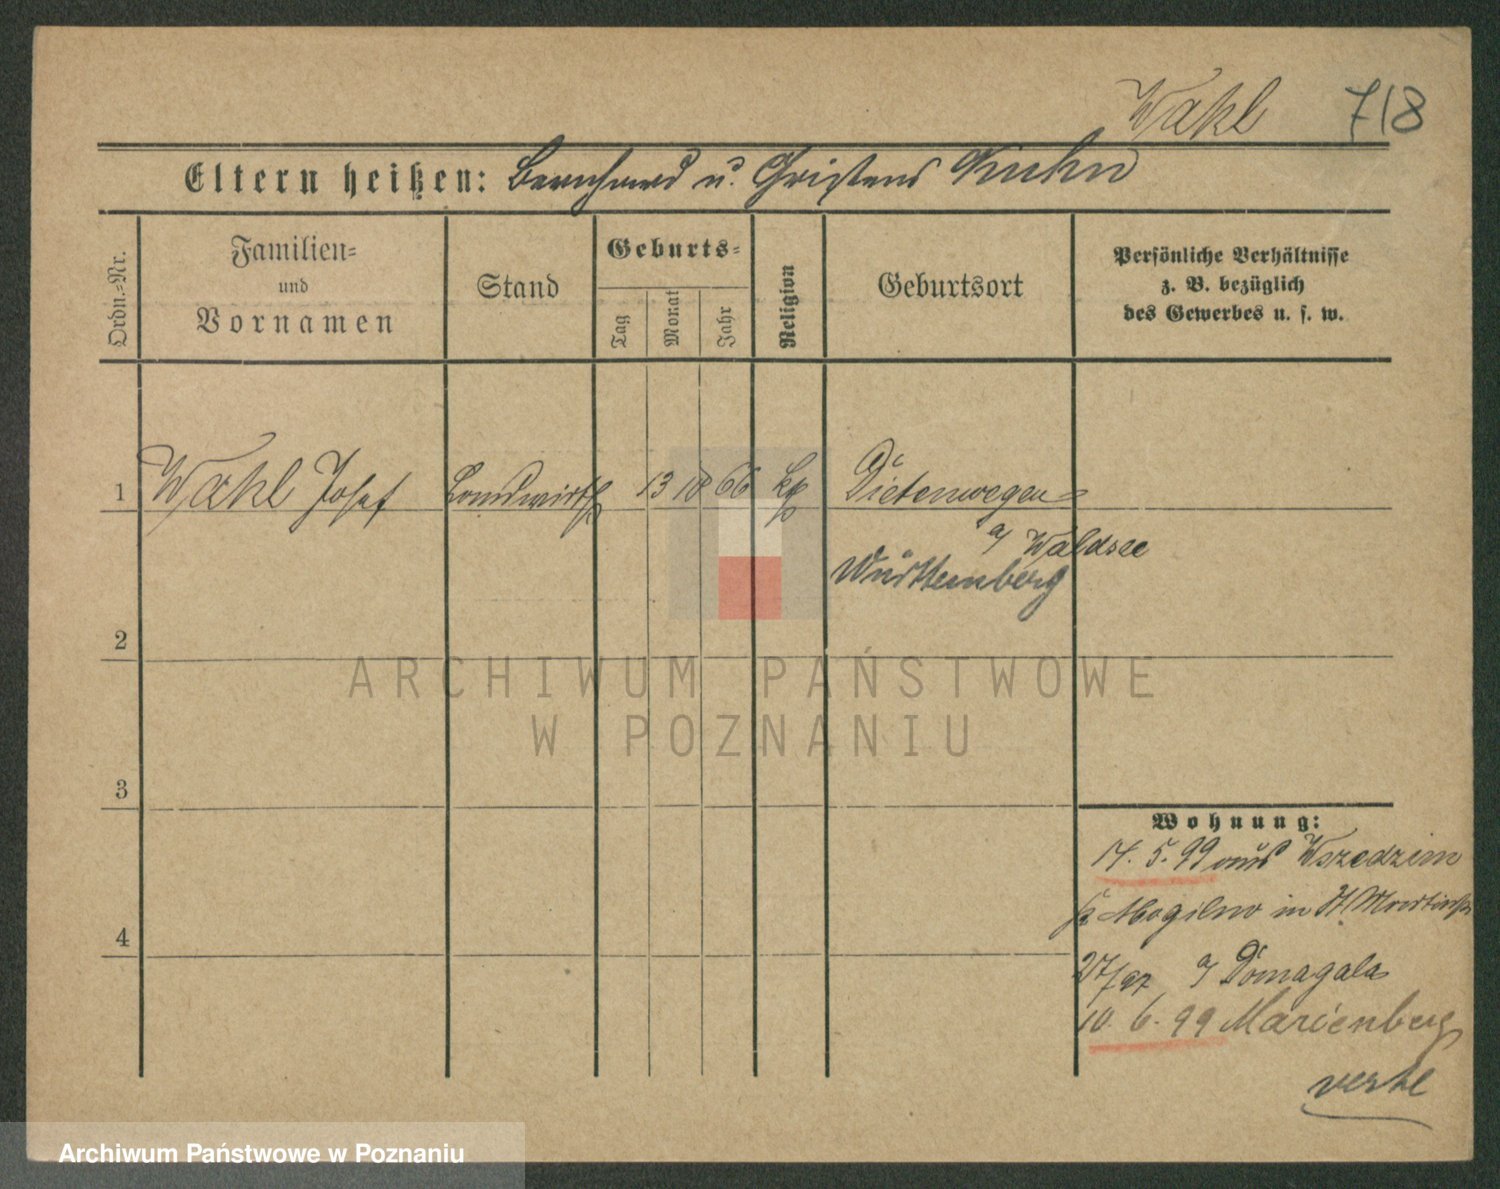 Wahl 718
Eltern heißen: Bernhard u. Kristens Kuhn
Ordn.-Nr.
Familien-
und
Vornamen
Stand
Geburts-
Tag
Monat
Jahr
Religion
Geburtsort
Persönliche Verhältnisse
z. B. bezüglich
des Gewerbes u. s. w.
1 Wahl Josef Landwirth 13 10 66 kth Dietenwegen
a/ Waldsee
Württemberg
2
ARCHIWUM PAŃSTWOWE
W POZNANIU
3
Wohnung:
17. 5. 99 aus Wszedzin
Mogilno in St. Martinstr
4
27/97 a/ Domagala
10. 6. 99 Marienberg
Archiwum Państwowe w Poznaniu